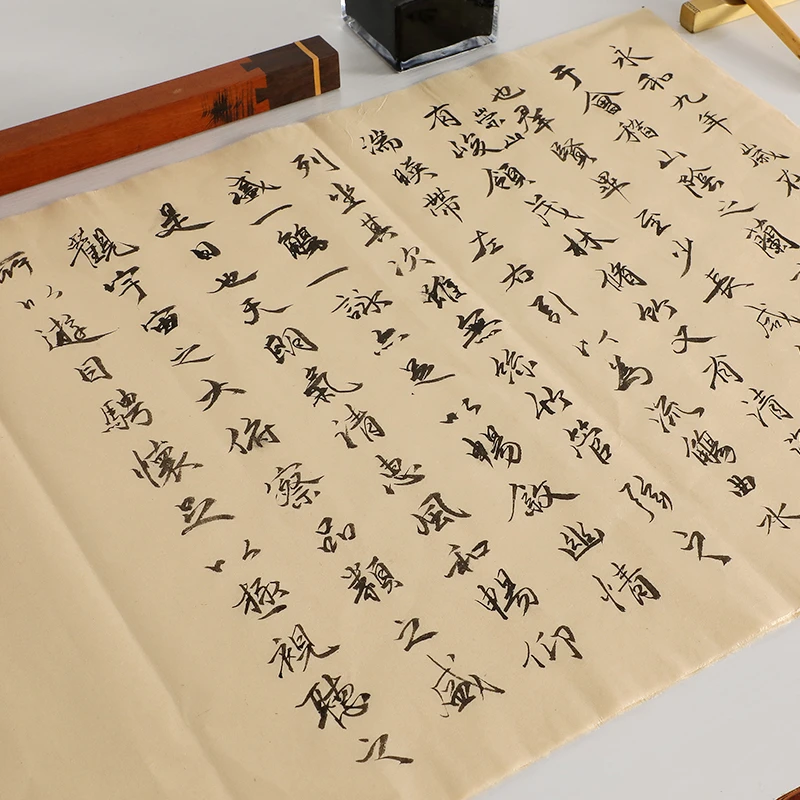 永和九年歲在
于會稽山陰之蘭
也羣賢畢至少長咸
有崇山峻領茂林脩竹又有清
湍暎帶左右引以為流觴曲水
列坐其次雖無絲竹管弦之
盛一觴一詠亦足以暢敘幽情
是日也天朗氣清惠風和暢仰
觀宇宙之大俯察品類之盛
所以遊目騁懷足以極視聽之